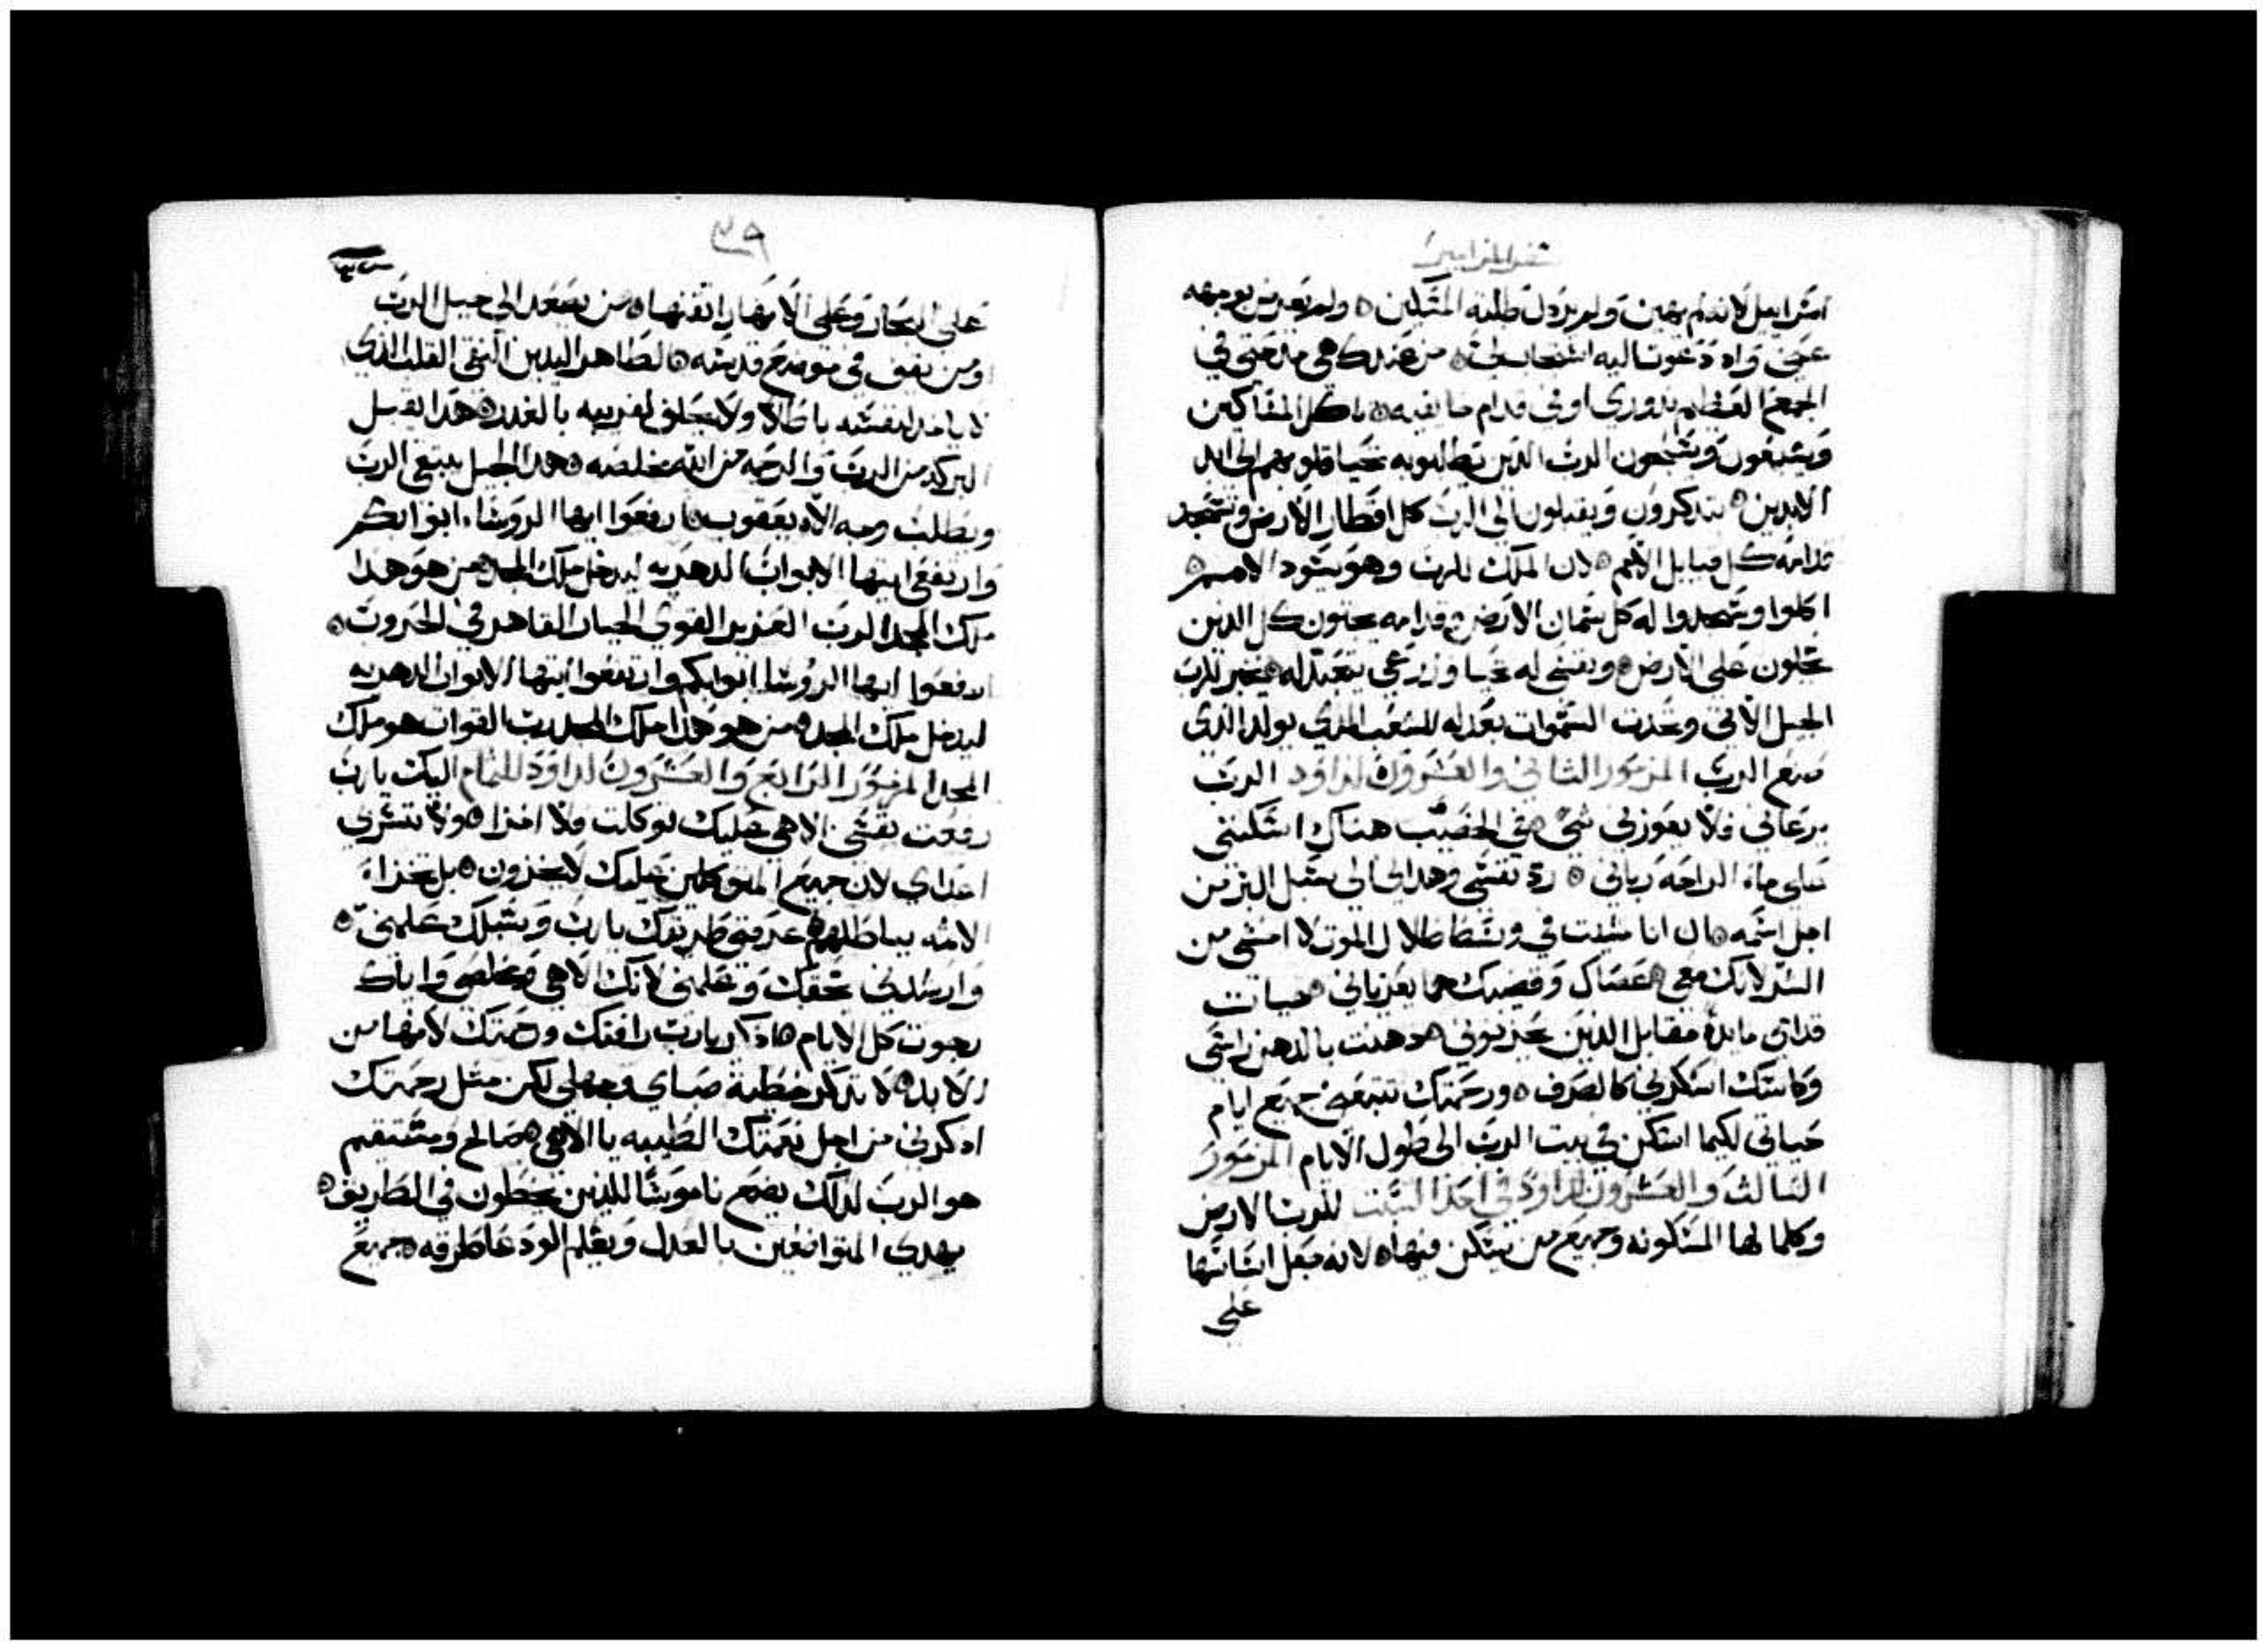 سفر المزامير
اسراييل لانه لم يهين ولم يردل طلبه المسكين ۞ ولم يعرض بوجهه
عني واد دعوت اليه استجاب لي ۞ من عندك هي مدحتي في
الجمع العظيم ندوري اوفي قدام خايفيه ۞ ياكل المساكين
ويشبعون ويسبحون الرب الدين يطلبونه تحيا قلوبهم الى ابد
الابدين ۞ يتدكرون ويقبلون الى الرب كل اقطار الارض وتسجد
قدامه كل قبايل الامم ۞ لان الملك للرب وهو يسود الامم ۞
اكلوا ويسجدوا له كل سمان الارض وقدامه يجتون كل الدين
يحلون على الارض ۞ ونفسي له تحيا وزرعي يتعبد له ۞ يخبر للرب
الجيل الاتي وتحدت السموات بعدله للشعب الدي يولد الدي
صنع الرب المزمور التاني والعشرون لداود الرب
يرعاني فلا يعوزني شي ۞ في الخصب هناك اسكنني
على ماء الراحه رباني ۞ رد نفسي وهداني الى سبل البر من
اجل اسمه ۞ ان انا مشيت في وسط ظلال الموت لا اخشى من
الشر لانك معي ۞ عصاك وقضيبك هما يعزياني ۞ هيات
قدامي مايده مقابل الدين يحزنوني ۞ دهنت بالدهن راسي
وكاسك اسكرني كالصرف ۞ ورحمتك تتبعني جميع ايام
حياتي لكيما اسكن في بيت الرب الى طول الايام المزمور
التالت والعشرون لداود في احد السبت للرب الارض
وكلما لها المسكونه وجميع من يسكن فيها ۞ لانه جعل اساسها
على
٣٩
على البحار وعلى الانهار اتقنها ۞ من يصعد الى جبل الرب
ومن يقف في موضع قدسه ۞ الطاهر اليدين النقي القلب الدي
لا ياخد لنفسه باطلا ولا يحلف لقريبه بالغدر ۞ هدا يقبل
البركه من الرب والرحمه من الله مخلصه ۞ هدا الجيل يبتغي الرب
ويطلب وجه الاه يعقوب ۞ ارفعوا ايها الروسا ابوابكم
وارتفعي ايتها الابواب الدهريه ليدخل ملك المجد ۞ من هو هدا
ملك المجد الرب العزيز القوي الجبار القاهر في الحروب ۞
ارفعوا ايها الروسا ابوابكم وارتفعوا ايتها الابواب الدهريه
ليدخل ملك المجد ۞ من هو هدا ملك المجد رب القوات هو ملك
المجد المزمور الرابع والعشرون لداود للتمام اليك يارب
رفعت نفسي الاهي عليك توكلت فلا اخزا ۞ ولا تسر بي
اعداي لان جميع المتوكلين عليك لا يخزون ۞ بل يخزاء
الاتمه بباطلهم ۞ عرفني طريقك يارب وسبلك علمني ۞
وارشدني بحقك وعلمني لانك الاهي ومخلصي واياك
رجوت كل الايام ۞ ادكر يارب رافتك ورحمتك لانها من
الابد ۞ لا تدكر خطية صباي وجهلي لكن متل رحمتك
ادكرني من اجل نعمتك الطيبه يا الاهي ۞ صالح ومستقيم
هو الرب لدلك يضع ناموسا للدين يخطون في الطريق ۞
يهدي المتواضعين بالعدل ويعلم الودعا طرقه ۞ جميع